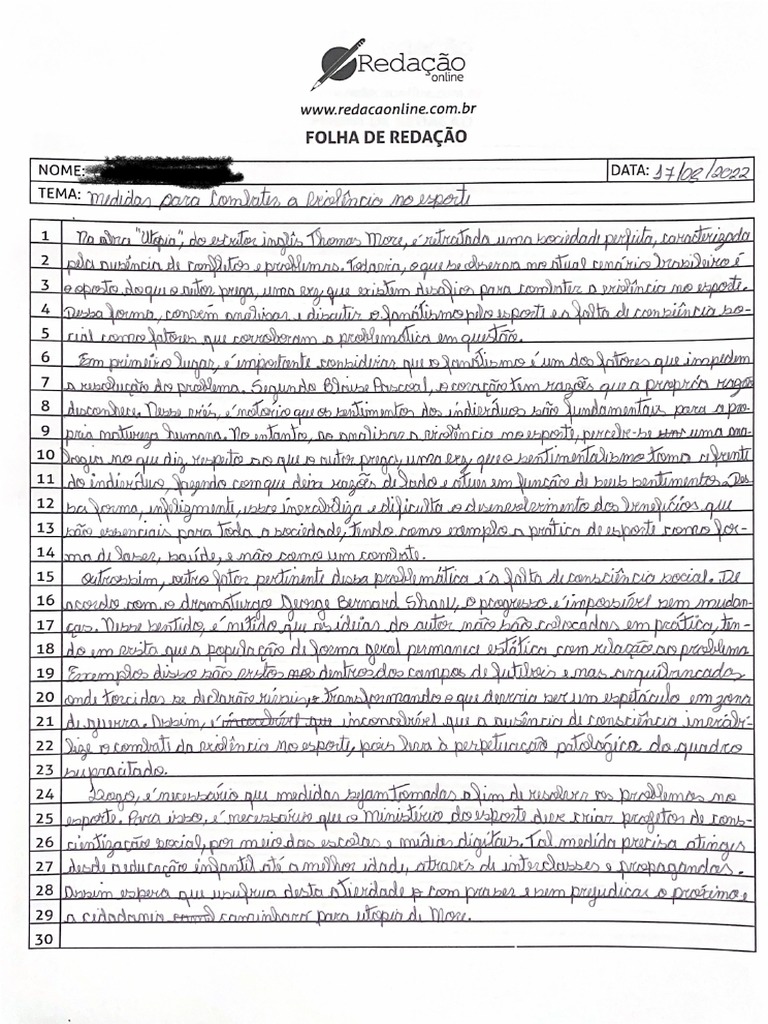 Redação
online
www.redacaonline.com.br
FOLHA DE REDAÇÃO
NOME: DATA: 17/02/2022
TEMA: Medidas para combater a violência no esporte
1 Na obra "Utopia", do escritor inglês Thomas More, é retratada uma sociedade perfeita, caracterizada
2 pela ausência de conflitos e problemas. Todavia, o que se observa no atual cenário brasileiro é
3 o oposto do que o autor prega, uma vez que existem desafios para combater a violência no esporte.
4 Dessa forma, convém analisar e discutir o fanátismo pelo esporte e a falta de consiência so-
5 cial como fatores que corroboram a problemática em questão.
6 Em primeiro lugar, é importante considerar que o fanátismo é um dos fatores que impedem
7 a resolução do problema. Segundo Blaise Pascal, o coração tem razões que a propria razão
8 desconhece. Nesse viés, é notorio que os sentimentos dos indivíduos são fundamentais para a pro-
9 pria natureza humana. No entanto, ao analisar a violência no esporte, percebe-se uma ana-
10 logia no que diz respeito ao que o autor prega, uma vez que o sentimentalismo toma a frente
11 do indivíduo, fazendo com que deixe razões de lado e atue em função de seus sentimentos. Des-
12 sa forma, infelizmente, isso inviabiliza e dificulta o desenvolvimento dos benefícios que
13 são essenciais para toda a sociedade, tendo como exemplo a prática de esporte como for-
14 ma de lazer, saúde, e não como um combate.
15 Outrossim, outro fator pertinente dessa problemática é a falta de consciência social. De
16 acordo com o dramaturgo George Bernard Shaw, o progresso é impossível sem mudan-
17 ças. Nesse sentido, é nítido que as ideias do autor não são colocadas em prática, ten-
18 do em vista que a população de forma geral permanece estática com relação ao problema.
19 Exemplos disso são vistos dentros dos campos de futebois e nas arquibancadas
20 onde torcidas se declarão rivais, transformando o que deveria ser um espetáculo em zona
21 de guerra. Assim, é inconcebível que a ausência de consciência inviabi-
22 lize o combate da violência no esporte, pois leva à perpetuação patológica do quadro
23 supracitado.
24 Logo, é necessário que medidas sejam tomadas a fim de resolver os problemas no
25 esporte. Para isso, é necessário que o Ministério do esporte deve criar projetos de cons-
26 cientização social, por meio das escolas e mídias digitais. Tal medida precisa atingir
27 desde a educação infantil até a melhor idade, através de interclasses e propagandas.
28 Assim espera que usufrua desta atividade com prazer e sem prejudicar o próximo e
29 a cidadania caminhara para utopia de More.
30